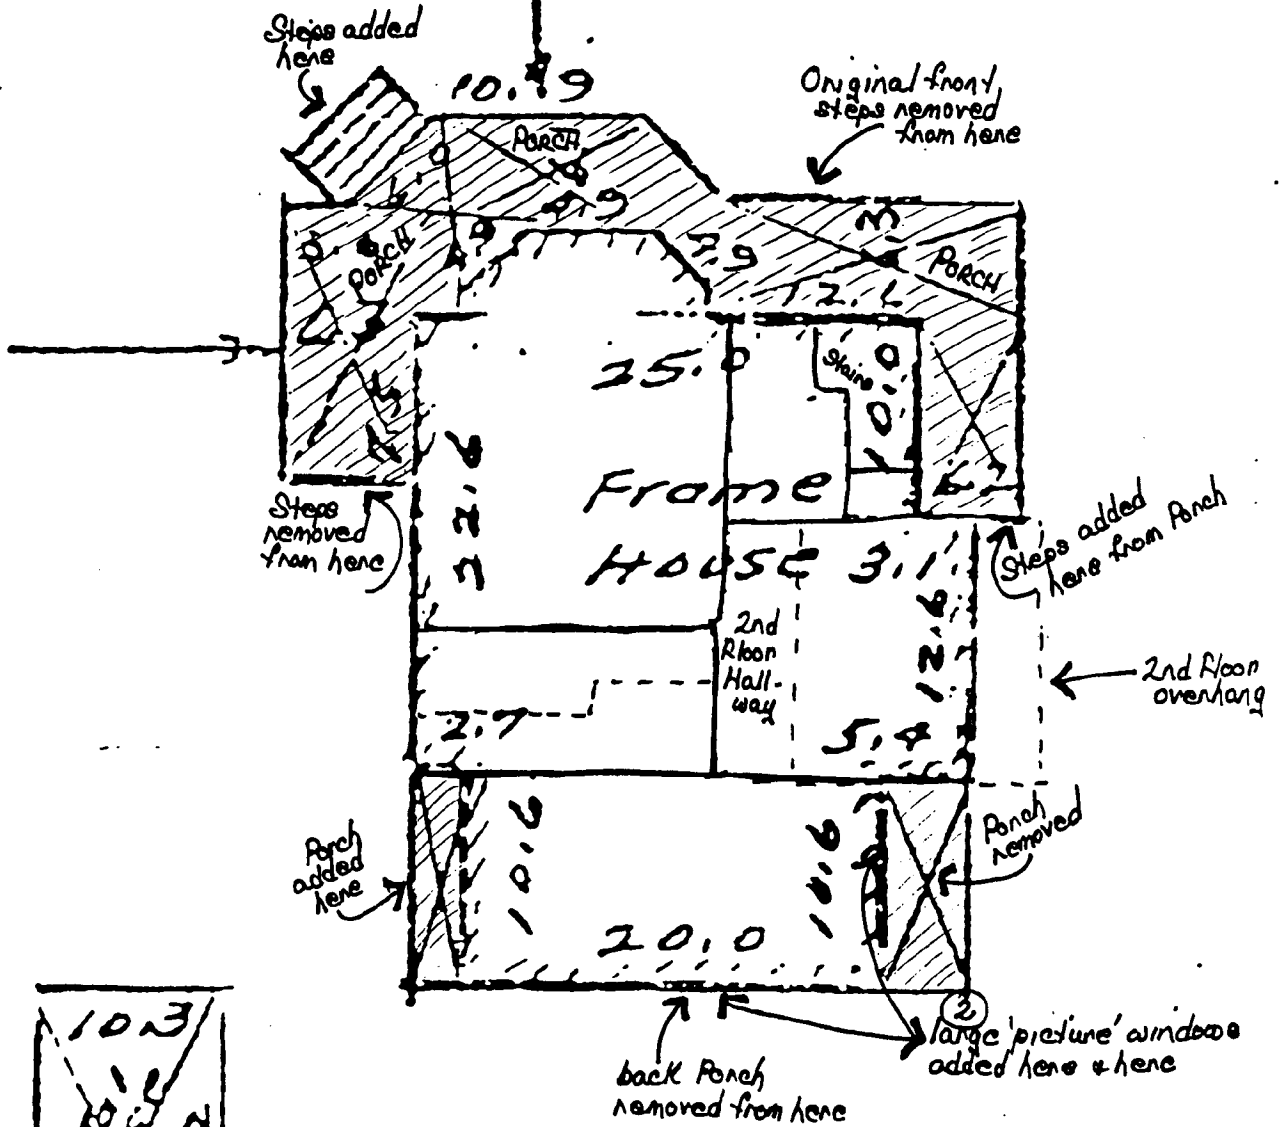 Steps added
here
10.9
Original front
steps removed
from here
PORCH
PORCH
7.9
PORCH
12.
25.0
Stairs
10.0
22.6
Frame
Steps
removed
from here
House
3.1
Steps added
here from Porch
2nd
Floor
Hall-
way
12.6
2nd Floor
overhang
2.7
5.4
Porch
added
here
10.6
10.6
Porch
removed
20.0
2
10.3
large 'picture' windows
added here & here
back Porch
removed from here